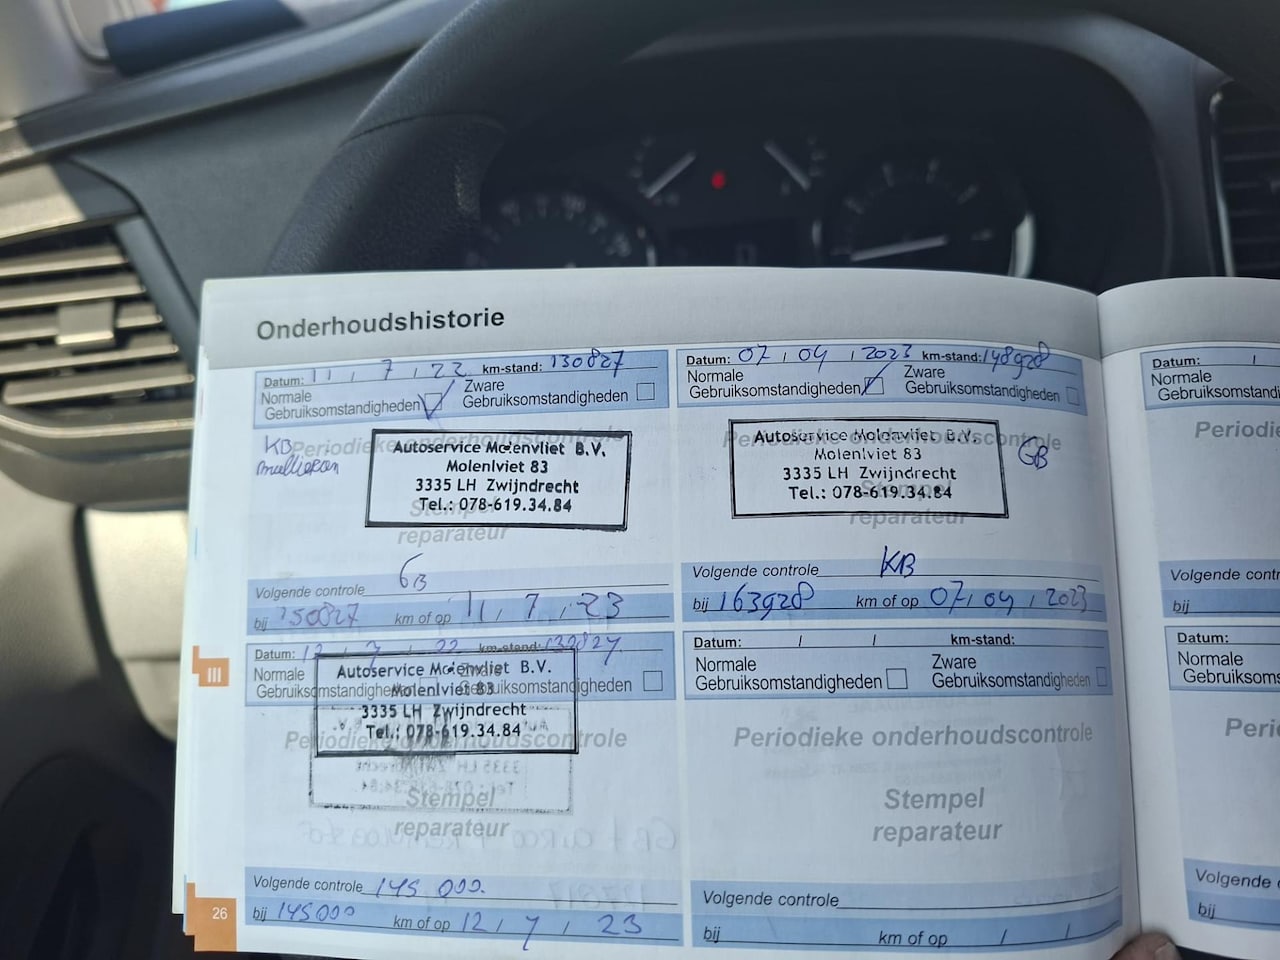 Onderhoudshistorie
Datum: 11 / 7 / 22 km-stand: 130827
Normale
Gebruiksomstandigheden
Zware
Gebruiksomstandigheden
KB
Periodieke onderhoudscontrole
Autoservice Molenvliet B.V.
Molenlviet 83
3335 LH Zwijndrecht
Tel.: 078-619.34.84
Stempel
reparateur
Volgende controle GB
bij 150827 km of op 11 / 7 / 23
Datum: 07 / 04 / 2023 km-stand: 148928
Normale
Gebruiksomstandigheden
Zware
Gebruiksomstandigheden
Periodieke onderhoudscontrole
Autoservice Molenvliet B.V.
Molenlviet 83
3335 LH Zwijndrecht
Tel.: 078-619.34.84
GB
Stempel
reparateur
Volgende controle KB
bij 163928 km of op 07 / 04 / 2023
Datum: 12 / 7 / 22 km-stand: 130827
Normale
Gebruiksomstandigheden
Zware
Gebruiksomstandigheden
Autoservice Molenvliet B.V.
Molenlviet 83
3335 LH Zwijndrecht
Tel.: 078-619.34.84
Periodieke onderhoudscontrole
Stempel
reparateur
Volgende controle 145 000
bij 145000 km of op 12 / 7 / 23
Datum: / / km-stand:
Normale
Gebruiksomstandigheden
Zware
Gebruiksomstandigheden
Periodieke onderhoudscontrole
Stempel
reparateur
Volgende controle
bij km of op / /
III
26
Datum: /
Normale
Gebruiksomstandi
Periodie
Volgende contr
bij
Datum:
Normale
Gebruiksoms
Perio
Volgende
bij